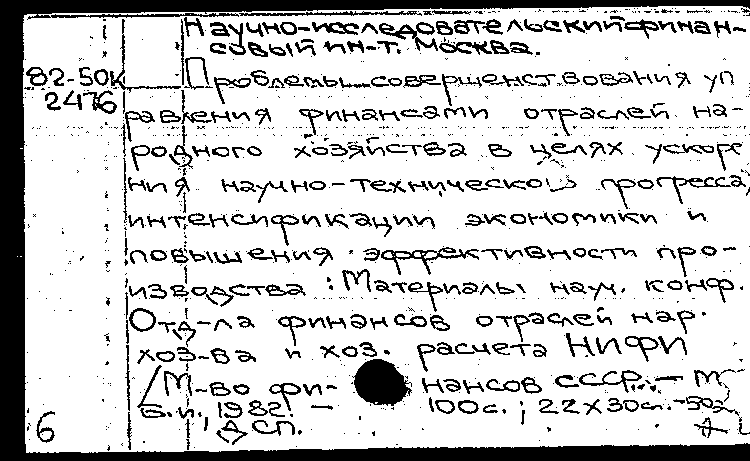 Научно-исследовательский финан-
совый ин-т. Москва.
82-50к
Проблемы совершенствования уп
2476
равления финансами отраслей на-
родного хозяйства в целях ускоре
ния научно-технического прогресса,
интенсификации экономики и
повышения эффективности про-
изводства : Материалы науч. конф.
Отд-ла финансов отраслей нар.
хоз-ва и хоз. расчета НИФИ
/М-во финансов СССР. - М
Б.и., 1982. - 100с. ; 22х30см. -50э
6
, ДСП.